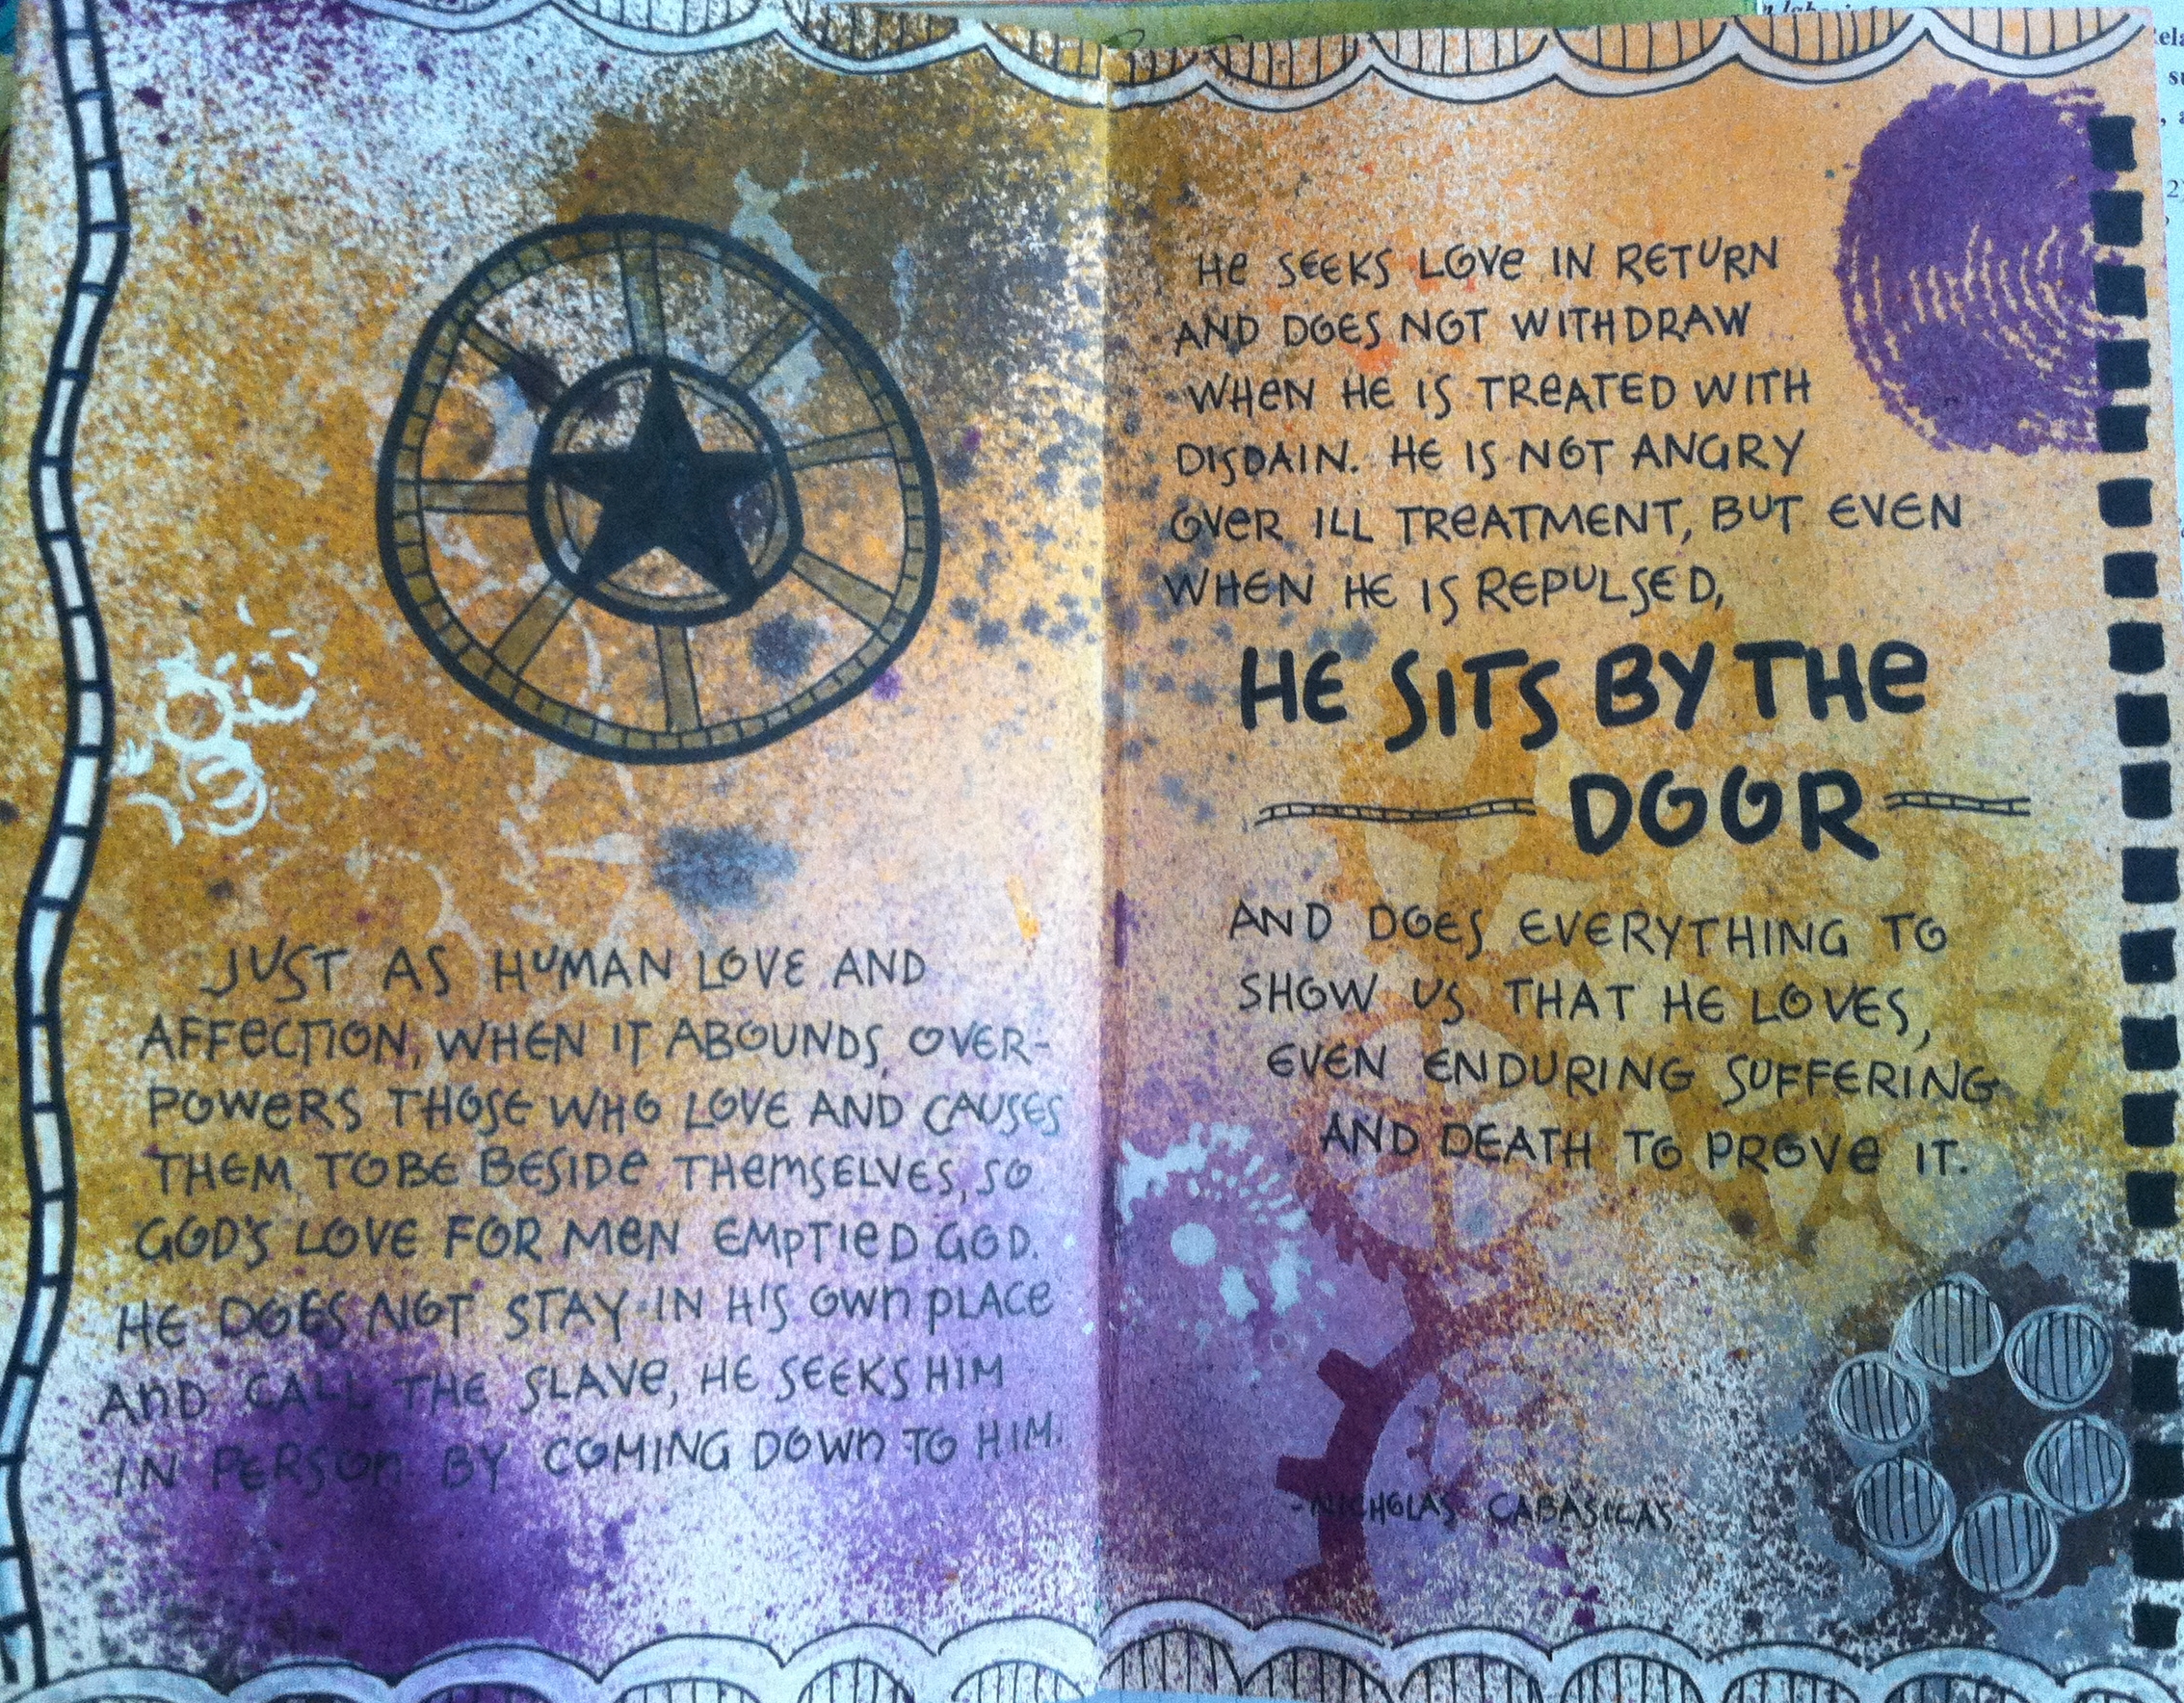 JUST AS HUMAN LOVE AND
AFFECTION, WHEN IT ABOUNDS, OVER-
POWERS THOSE WHO LOVE AND CAUSES
THEM TO BE BESIDE THEMSELVES, SO
GOD'S LOVE FOR MEN EMPTIED GOD.
HE DOES NOT STAY IN HIS OWN PLACE
AND CALL THE SLAVE, HE SEEKS HIM
IN PERSON BY COMING DOWN TO HIM.
HE SEEKS LOVE IN RETURN
AND DOES NOT WITHDRAW
WHEN HE IS TREATED WITH
DISDAIN. HE IS NOT ANGRY
OVER ILL TREATMENT, BUT EVEN
WHEN HE IS REPULSED,
HE SITS BY THE
DOOR
AND DOES EVERYTHING TO
SHOW US THAT HE LOVES,
EVEN ENDURING SUFFERING
AND DEATH TO PROVE IT.
-NICHOLAS CABASILAS